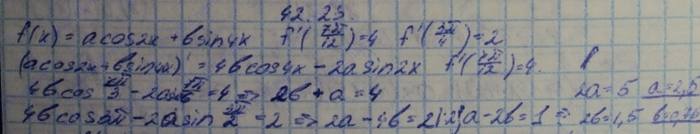 42.23
f(x) = acos2x + bsin4x f'(7π/12)=4 f'(3π/4)=2
(acos2x + bsin4x)' = 4bcos4x - 2asin2x f'(7π/12)=4.
4bcos 7π/3 - 2asin 7π/6 = 4 => 2b + a = 4 2a = 5 a = 2,5
4bcos3π - 2asin 3π/2 = 2 => 2a - 4b = 2 |:2| a - 2b = 1 => 2b = 1,5 b = 0,75